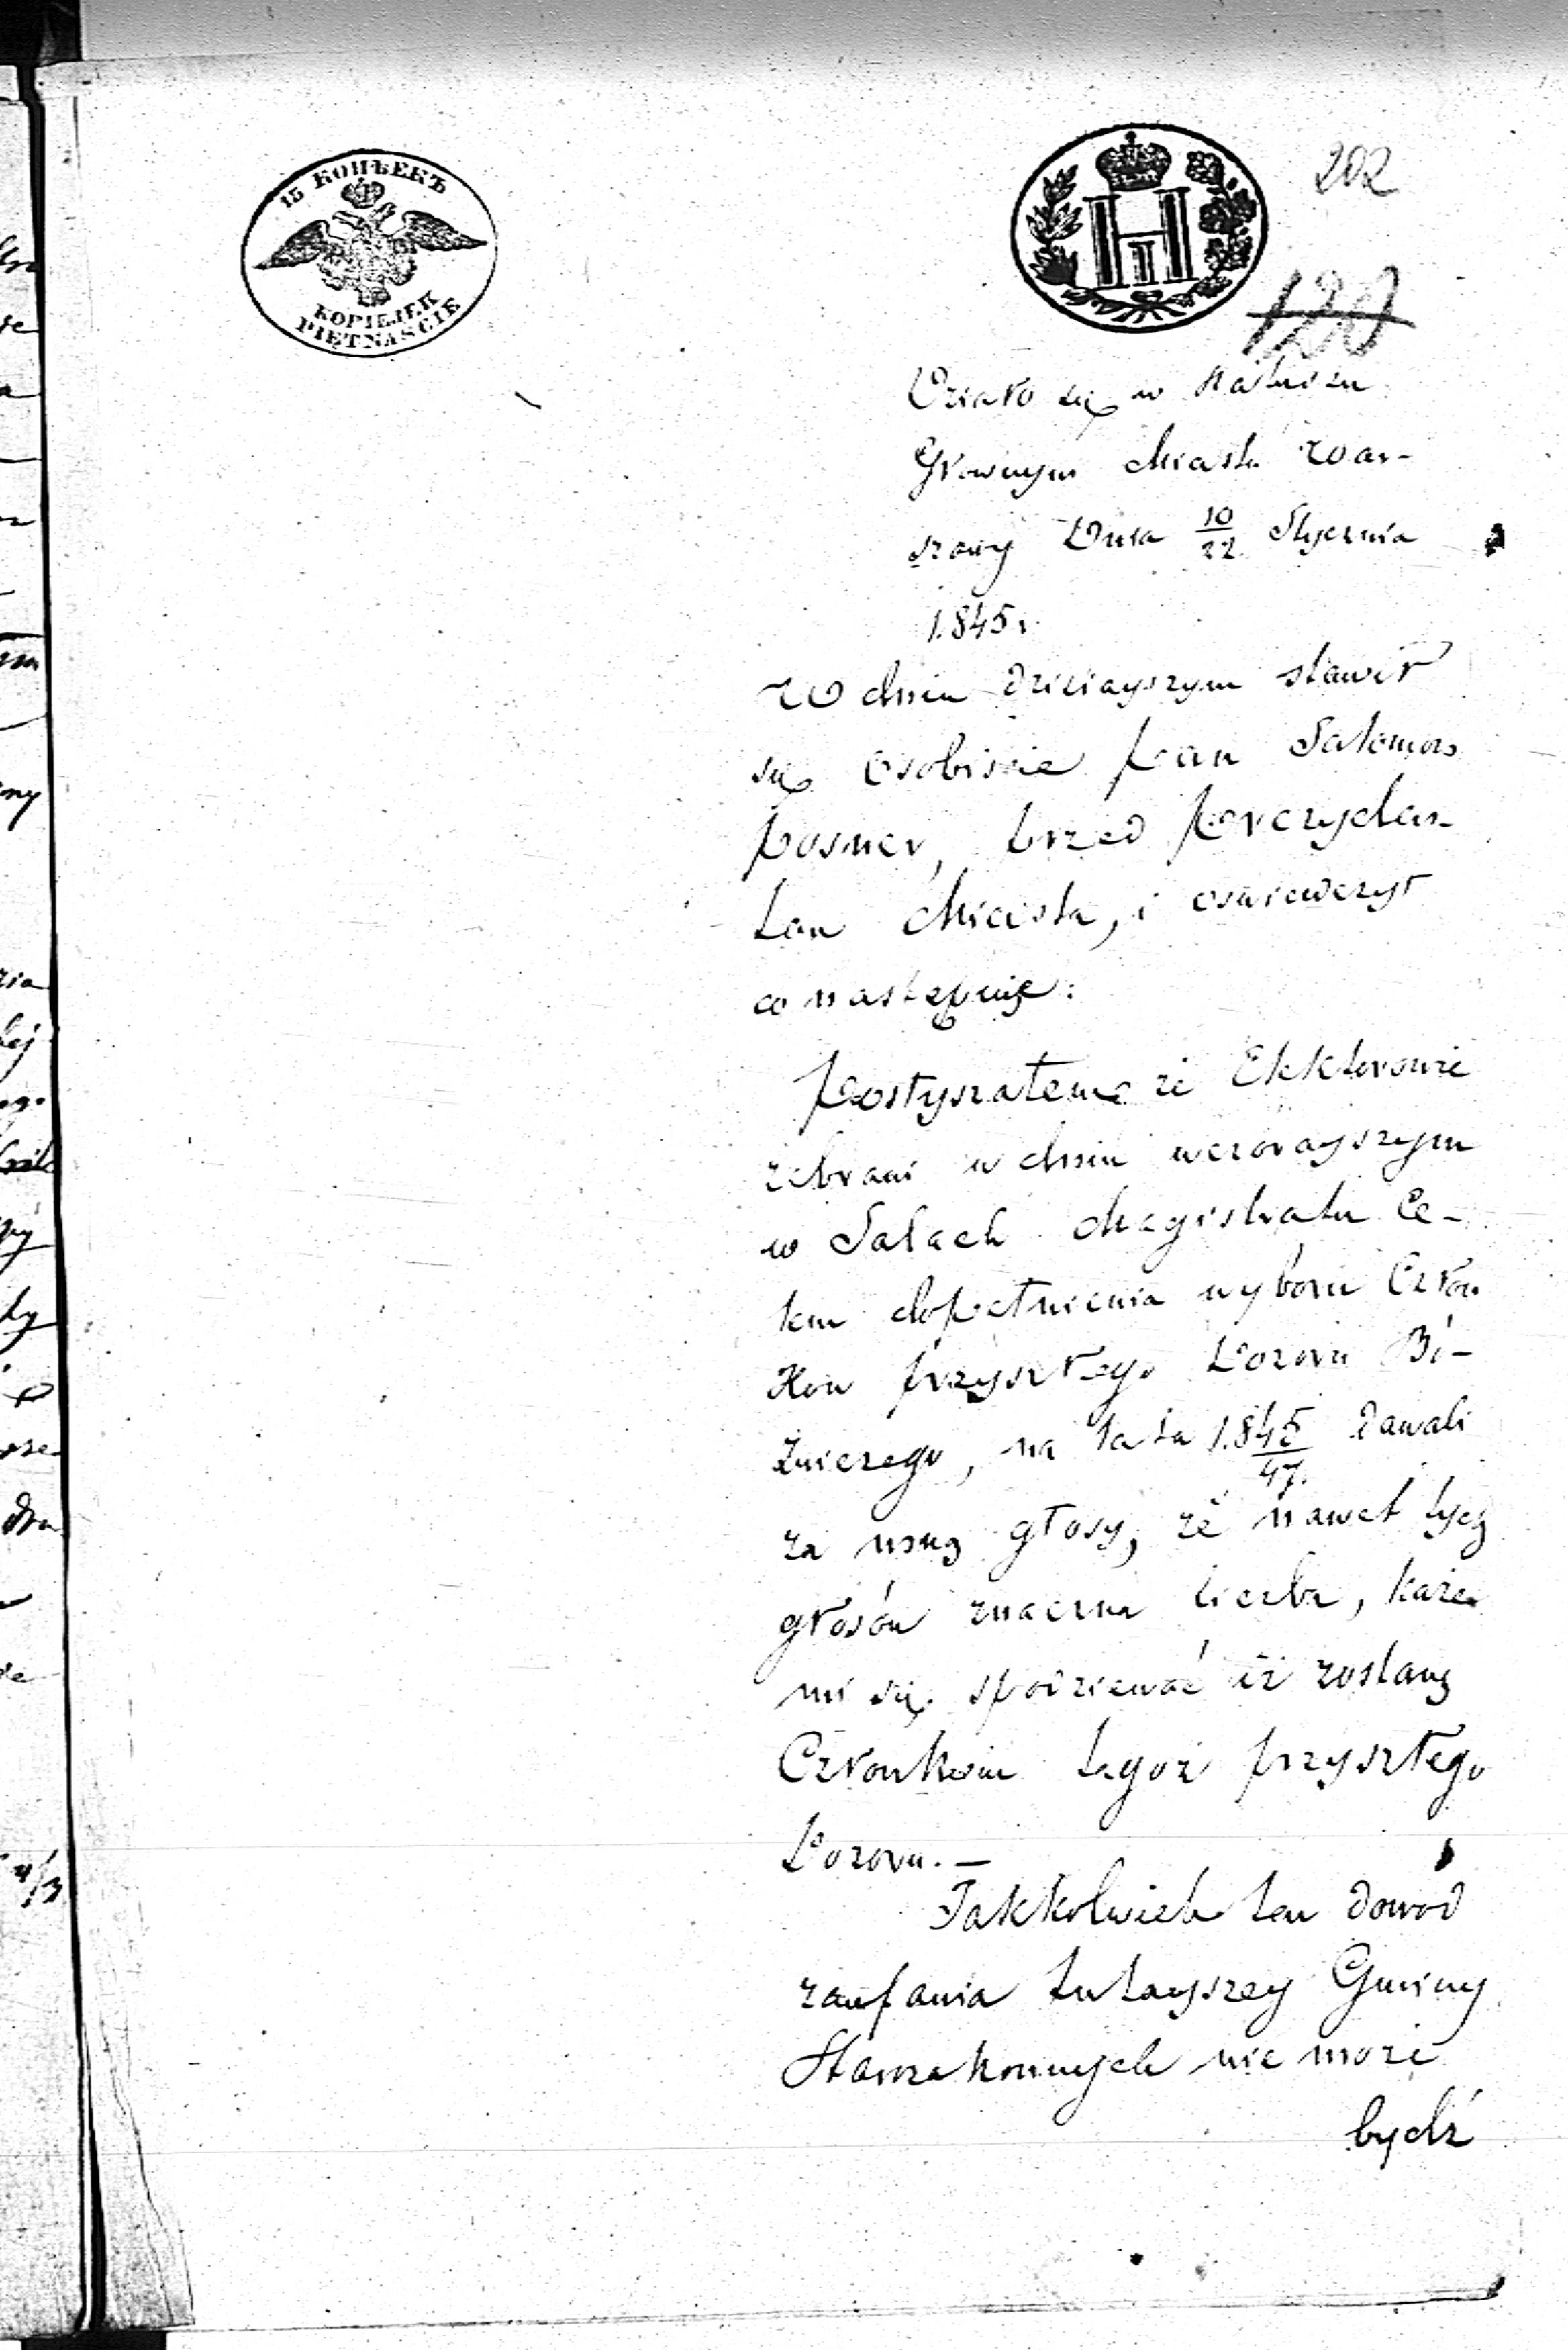 15 КОПѢЕКЪ
KOPIEJEK
PIĘTNAŚCIE
202
120
Działo się w Ratuszu
Głownym Miasta War-
szawy Dnia 10/22 Stycznia
1845 r.
W dniu dzisiayszym stawił
się osobiście Pan Salomon
Posner, przed Prezyden-
tem Miasta, i oświadczył
co następuię:
Posłyszałem że Elektorowie
zebrani w dniu wczorayszym
w Salach Magistratu Ce-
lem dopełnienia wyboru Człon
ków przyszłego Dozoru Bó-
żniczego, na lata 1845/47. dawali
za mną głosy, że nawet tych
głosów znaczna liczba, każe
mi się spodziewać iż zostanę
Członkiem tegoż przyszłego
Dozoru. —
Jakkolwiek ten dowód
zaufania tutayszey Gminy
Starozakonnych nie może
bydź